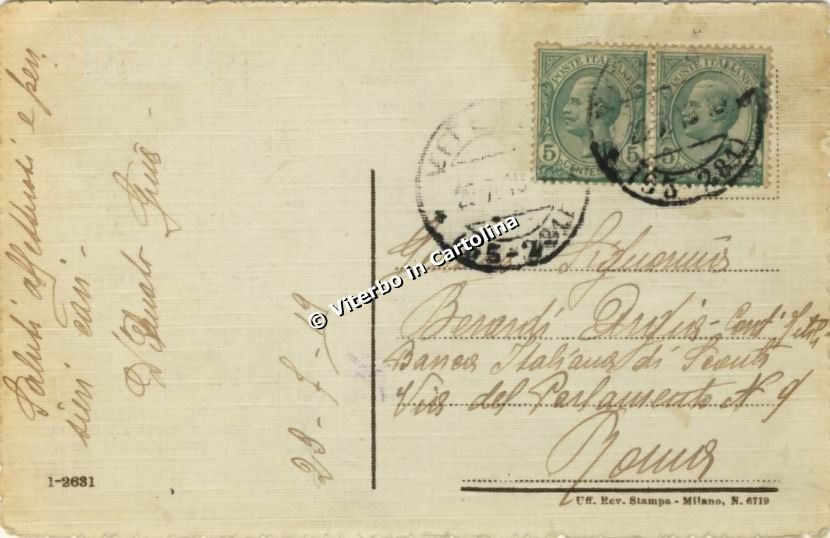 Saluti affettuosi e pen
sieri cari -
D'Amato
23 - 7 - 19
1-2631
POSTE ITALIANE
5 CENTES 5
POSTE ITALIANE
5
VITE
* 55-281)
* (55-281)
© Viterbo in Cartolina
Signorina
Berardi
Banca Italiana di Sconto
Via del Parlamento N 9
Roma
Uff. Rev. Stampa - Milano, N. 6719